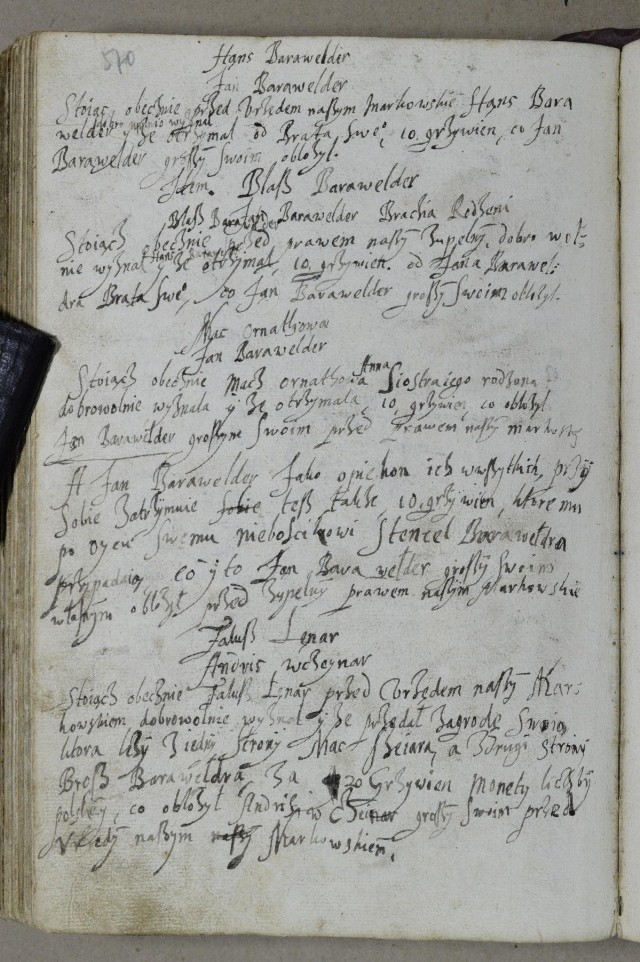 570
Hans Barawelder
Jan Barawelder
Stoiąc obecznie przed Vrzedem naszym Markowskie Hans Bara
dobrowolnie wyznal
welder yze otrzymal od Brata swe°, 10 grzywien, co Jan
Barawelder groszy swoim oblozyl.
Item. Blasz Barawelder
Blasz Barawelder Barawelder Bracia Rodzeni
Stoiącz obecznie przed prawem naszy zupelny, dobro wol:
nie wyznal yze otrzymal, 10. grzywien. od Jana Barawel:
dra Brata swe°, co Jan Barawelder groszy swoim oblozyl.
Mac ornathowa
Jan Barawelder
Stoiącz obecznie Mach ornathowa Anna Siostra iego rodzona
dobrowolnie wyznala yze otrzymala, 10, grzywien, co oblozyl
Jan Barawelder groszym swoim przed Prawem naszy
A Jan Barawelder Jako opiekon ich wszytkich, przy
sobie zatrzymuie sobie tesz takze, 10, grzywien, ktore mu
po oycu swemu nieboscikowi Stencel Barawełdra
przypadaią co y to Jan Barawełder groszy swoim
własnym oblozył przed zupelny prawem naszym Markowskie
Jalusz Lęnar
Andris
Stoiącz obecznie Jalusz Lęnar przed Vrzedem naszy Mar:
kowskiem dobrowolnie wyznal yze przedal zagrode swoią
ktora lezy z iedny strony Mac a z drugi strony
Brosz Barawełdra, za 20 Grzywien monety liczby
polsky, co oblozył groszy swoim przed
naszym naszy Markowskiem.